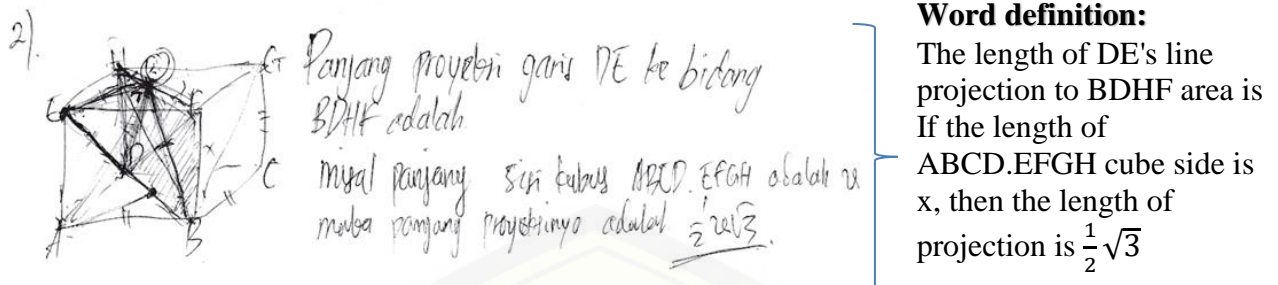 2).
Panjang proyeksi garis DE ke bidang
BDHF adalah
misal panjang sisi kubus ABCD.EFGH adalah x
maka panjang proyeksinya adalah 1/2 x√3.
E
G
A
B
C
D
x
Word definition:
The length of DE's line
projection to BDHF area is
If the length of
ABCD.EFGH cube side is
x, then the length of
projection is 1/2 √3